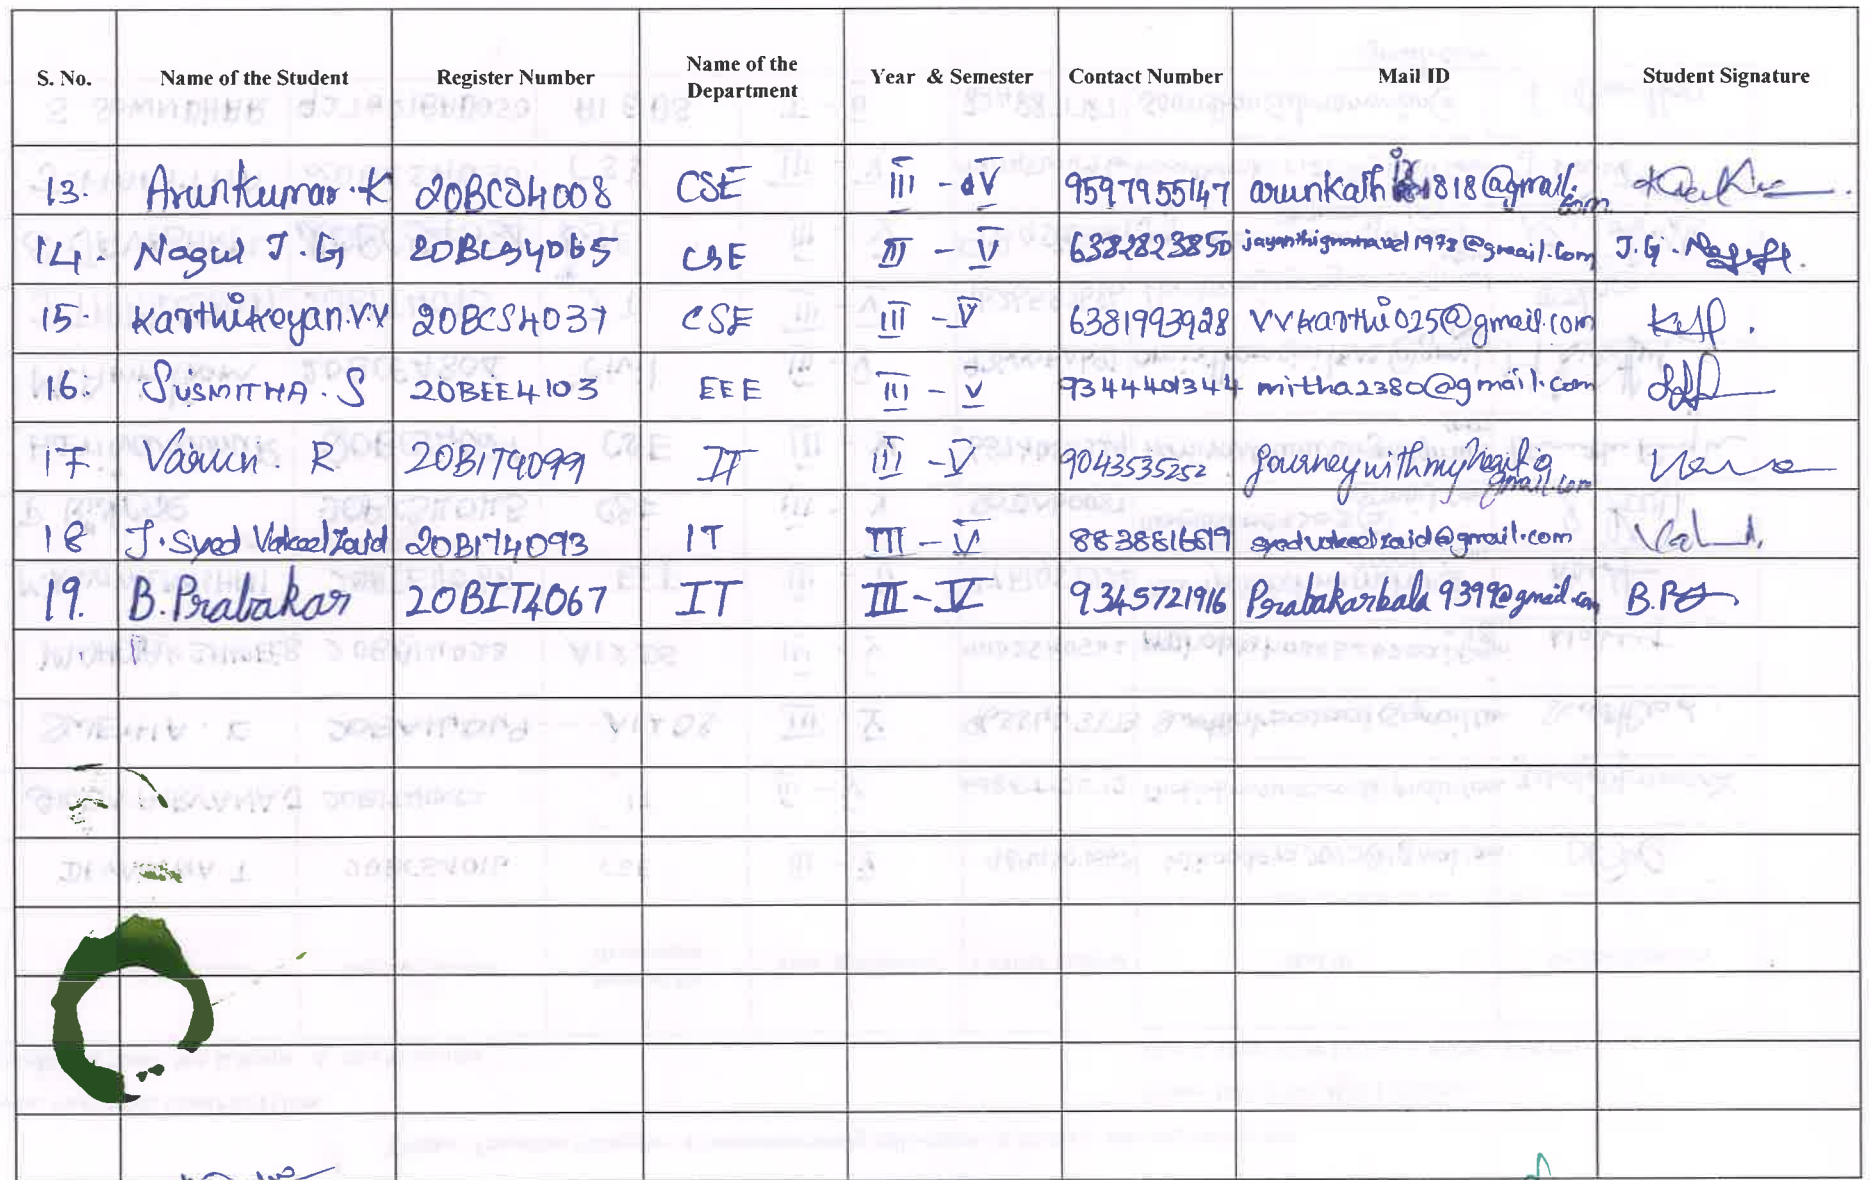 S. No. Name of the Student Register Number Name of the Department Year & Semester Contact Number Mail ID Student Signature
13. Arunkumar.K 20BCS4008 CSE III - V 9597955147
14. Nagul J.G 20BCS4065 CSE III - V 6382823850 jayanthignanavel1978@gmail.com J.G.
15. Karthikeyan.V.V 20BCS4037 CSE III - V 6381993928 vvkarthi025@gmail.com
16. SUSMITHA . S 20BEE4103 EEE III - V 9344401344 mitha2380@gmail.com
17 Varun. R 20BIT4099 IT III - V 9043535252
18 J. Syed Vakeel Zaid 20BIT4093 IT III - V 8838816819 syedvakeelzaid@gmail.com
19. B. Prabakar 20BIT4067 IT III - V 9345721916 Prabakarbala9399@gmail.com